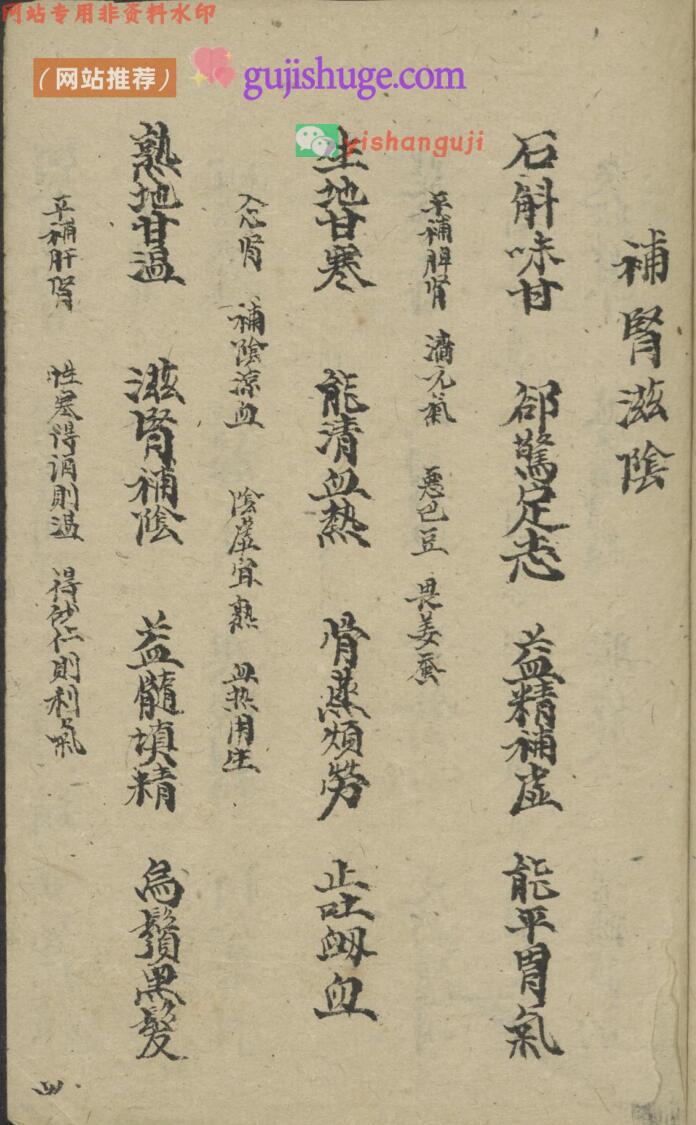 网站专用非资料水印
（网站推荐） gujishuge.com
yishanguji
補腎滋陰
石斛味甘 郤驚定志 益精補虛 能平胃氣
平補脾腎 濇元氣 惡巴豆 畏姜蚕
生地甘寒 能清血熱 骨蒸煩勞 止吐衂血
入心腎 補陰凉血 陰虛宜熟 血热用生
熟地甘温 滋腎補陰 益髓填精 烏鬚黑髮
平補肝腎 性寒得酒則温 得砂仁則利氣